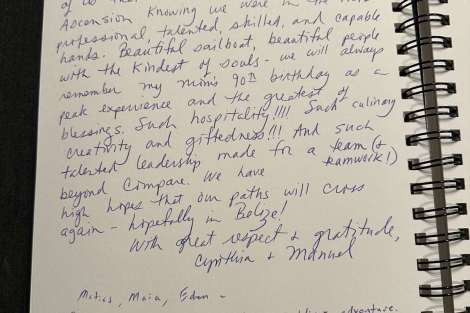 of us
Ascension knowing we were in the
professional, talented, skilled, and capable
hands. Beautiful sailboat, beautiful people
with the kindest of souls - we will always
remember my mom's 90th birthday as a
peak experience and the greatest of
blessings. Such hospitality!!!! Such culinary
creativity and giftedness!!! And such
talented leadership made for a team (&
teamwork!)
beyond compare. We have
high hopes that our paths will cross
again - hopefully in Belize!
With great respect & gratitude,
Cynthia & Manual
Maia, Eden -
adventure.